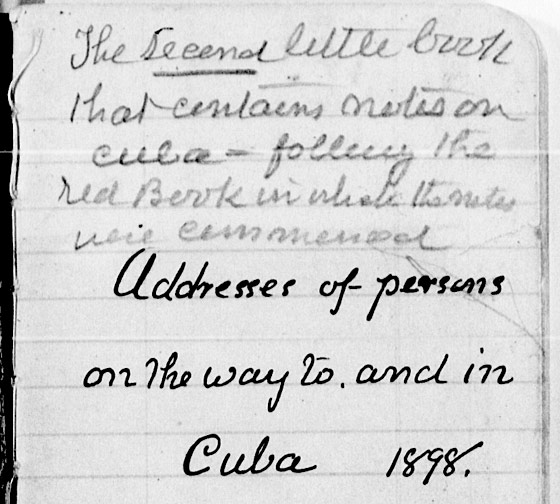 The second little book
that contains notes on
cuba - following the
red Book in which the notes
were commenced
Addresses of persons
on the way to. and in
Cuba 1898.